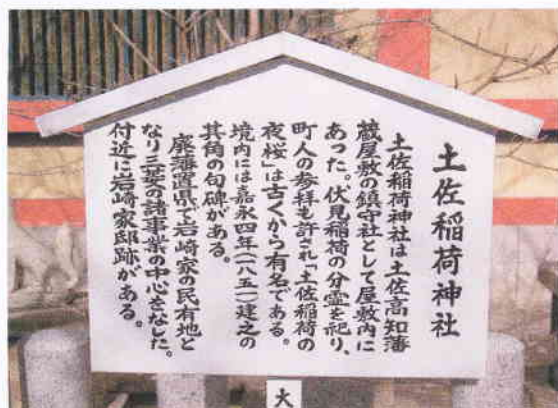 土佐稲荷神社
土佐稲荷神社は土佐高知藩
蔵屋敷の鎮守社として屋敷内に
あった。伏見稲荷の分霊を祀り、
町人の参拝も許され「土佐稲荷の
夜桜」は古くから有名である。
境内には嘉永四年(一八五一)建之の
其角の句碑がある。
廃藩置県で岩崎家の民有地と
なり三菱の諸事業の中心をなした。
付近に岩崎家邸跡がある。
大